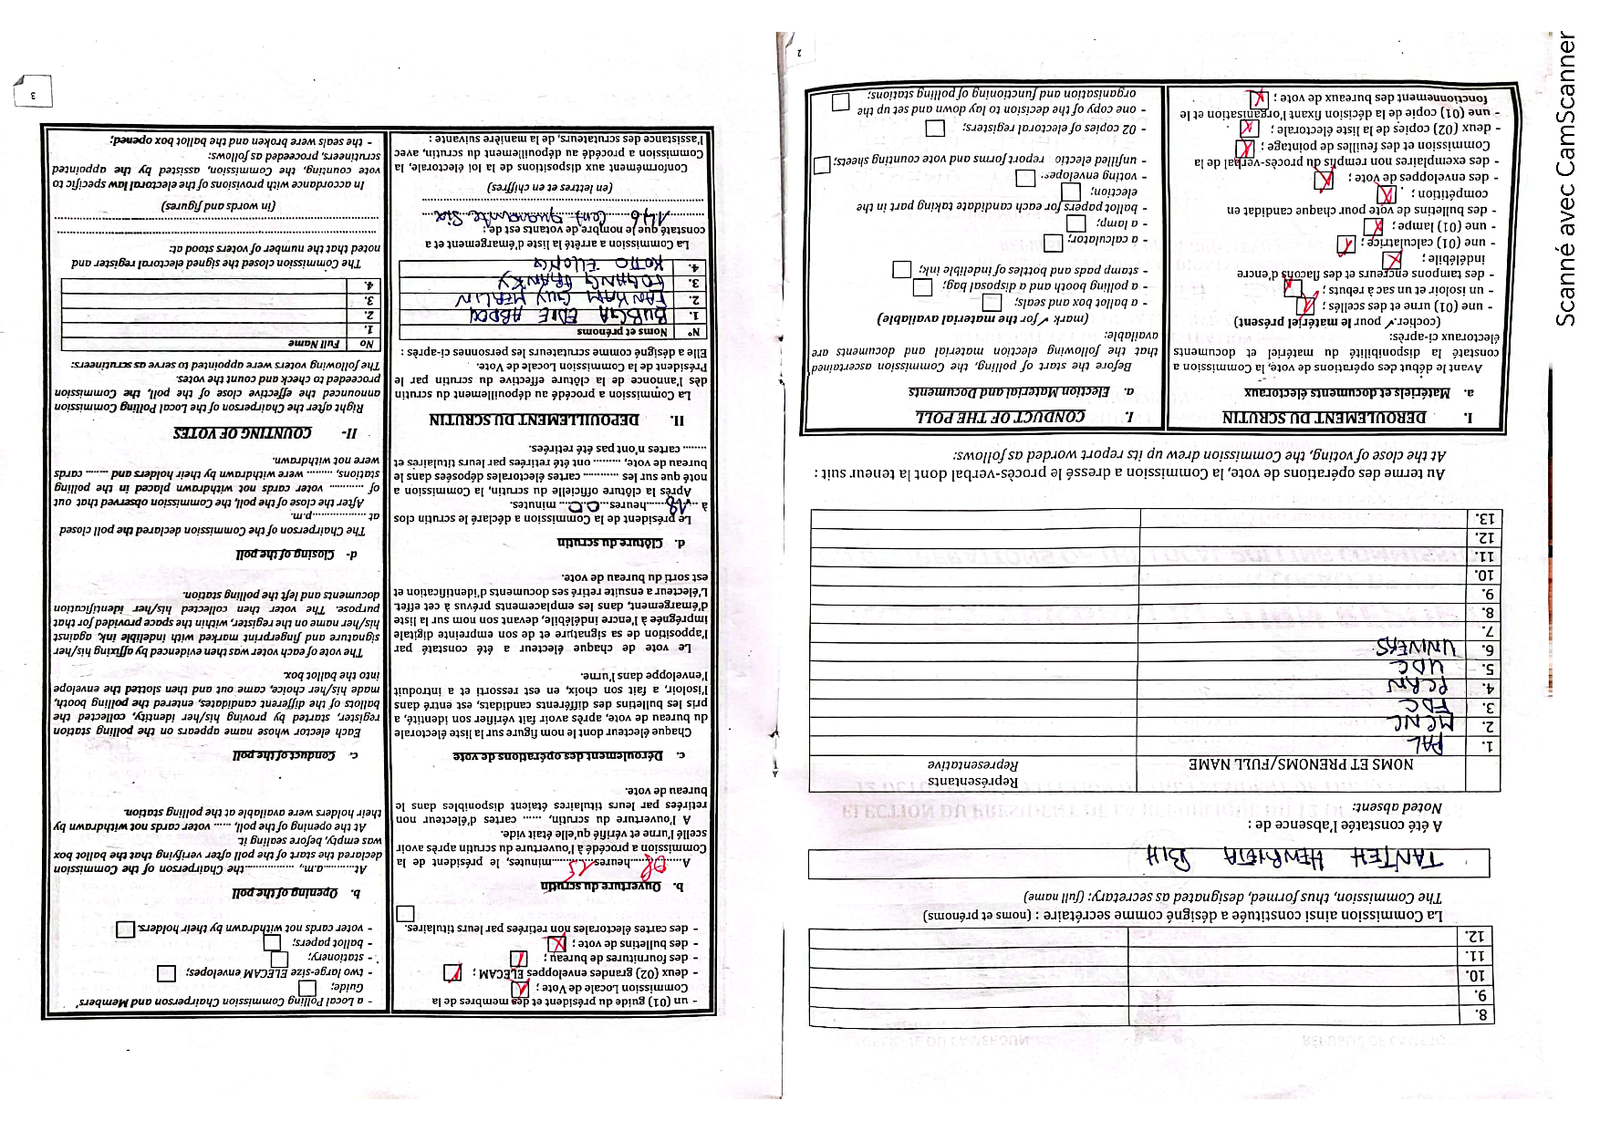 2
8.
9.
10.
11.
12.
La Commission ainsi constituée a désigné comme secrétaire : (noms et prénoms)
The Commission, thus formed, designated as secretary: (full name)
TANTEH HENRIETA BIH
A été constatée l'absence de :
Noted absent:
NOMS ET PRENOMS/FULL NAME
Représentants
Representative
1. PAL
2. MCNC
3. FDC
4. PCRN
5. UDC
6. UNIVERS
7.
8.
9.
10.
11.
12.
13.
Au terme des opérations de vote, la Commission a dressé le procès-verbal dont la teneur suit :
At the close of voting, the Commission drew up its report worded as follows:
I. DEROULEMENT DU SCRUTIN
a. Matériels et documents électoraux
Avant le début des opérations de vote, la Commission a
constaté la disponibilité du matériel et documents
électoraux ci-après:
(cocher ✓ pour le matériel présent)
- une (01) urne et des scellés ;
- un isoloir et un sac à rebuts ;
- des tampons encreurs et des flacons d'encre
indélébile ;
- une (01) calculatrice ;
- une (01) lampe ;
- des bulletins de vote pour chaque candidat en
compétition ;
- des enveloppes de vote ;
- des exemplaires non remplis du procès-verbal de la
Commission et des feuilles de pointage ;
- deux (02) copies de la liste électorale ;
- une (01) copie de la décision fixant l'organisation et le
fonctionnement des bureaux de vote ;
I. CONDUCT OF THE POLL
a. Election Material and Documents
Before the start of polling, the Commission ascertained
that the following election material and documents are
available:
(mark ✓ for the material available)
- a ballot box and seals;
- a polling booth and a disposal bag;
- stamp pads and bottles of indelible ink;
- a calculator;
- a lamp;
- ballot papers for each candidate taking part in the
election;
- voting envelopes;
- unfilled electio report forms and vote counting sheets;
- 02 copies of electoral registers;
- one copy of the decision to lay down and set up the
organisation and functioning of polling stations;
3
- un (01) guide du président et des membres de la
Commission Locale de Vote ;
- deux (02) grandes enveloppes ELECAM ;
- des fournitures de bureau ;
- des bulletins de vote ;
- des cartes électorales non retirées par leurs titulaires.
b. Ouverture du scrutin
A 08 heures 15 minutes, le président de la
Commission a procédé à l'ouverture du scrutin après avoir
scellé l'urne et vérifié qu'elle était vide.
A l'ouverture du scrutin, ...... cartes d'électeur non
retirées par leurs titulaires étaient disponibles dans le
bureau de vote.
c. Déroulement des opérations de vote
Chaque électeur dont le nom figure sur la liste électorale
du bureau de vote, après avoir fait vérifier son identité, a
pris les bulletins des différents candidats, est entré dans
l'isoloir, a fait son choix, en est ressorti et a introduit
l'enveloppe dans l'urne.
Le vote de chaque électeur a été constaté par
l'apposition de sa signature et de son empreinte digitale
imprégnée à l'encre indélébile, devant son nom sur la liste
d'émargement, dans les emplacements prévus à cet effet.
L'électeur a ensuite retiré ses documents d'identification et
est sorti du bureau de vote.
d. Clôture du scrutin
Le président de la Commission a déclaré le scrutin clos
à 18 heures 00 minutes.
Après la clôture officielle du scrutin, la Commission a
noté que sur les .......... cartes électorales déposées dans le
bureau de vote, ........ ont été retirées par leurs titulaires et
....... cartes n'ont pas été retirées.
II. DEPOUILLEMENT DU SCRUTIN
La Commission a procédé au dépouillement du scrutin
dès l'annonce de la clôture effective du scrutin par le
Président de la Commission Locale de Vote.
Elle a désigné comme scrutateurs les personnes ci-après :
N° Noms et prénoms
1. BUBGA EDIE ABDOU
2. FANKAM GUY MERLIN
3. FOHANG FRANKY
4. KOTTO ELLONG
La Commission a arrêté la liste d'émargement et a
constaté que le nombre de votants est de :
146 Cent quarante Six
(en lettres et en chiffres)
Conformément aux dispositions de la loi électorale, la
Commission a procédé au dépouillement du scrutin, avec
l'assistance des scrutateurs, de la manière suivante :
- a Local Polling Commission Chairperson and Members'
Guide;
- two large-size ELECAM envelopes;
- stationery;
- ballot papers;
- voter cards not withdrawn by their holders.
b. Opening of the poll
At..........a.m, ...............the Chairperson of the Commission
declared the start of the poll after verifying that the ballot box
was empty, before sealing it.
At the opening of the poll, ...... voter cards not withdrawn by
their holders were available at the polling station.
c. Conduct of the poll
Each elector whose name appears on the polling station
register, started by proving his/her identity, collected the
ballots of the different candidates, entered the polling booth,
made his/her choice, came out and then slotted the envelope
into the ballot box.
The vote of each voter was then evidenced by affixing his/her
signature and fingerprint marked with indelible ink, against
his/her name on the register, within the space provided for that
purpose. The voter then collected his/her identification
documents and left the polling station.
d- Closing of the poll
The Chairperson of the Commission declared the poll closed
at .................p.m.
After the close of the poll, the Commission observed that out
of .......... voter cards not withdrawn placed in the polling
stations, ........ were withdrawn by their holders and ....... cards
were not withdrawn.
II- COUNTING OF VOTES
Right after the Chairperson of the Local Polling Commission
announced the effective close of the poll, the Commission
proceeded to check and count the votes.
The following voters were appointed to serve as scrutineers:
No Full Name
1.
2.
3.
4.
The Commission closed the signed electoral register and
noted that the number of voters stood at:
(in words and figures)
In accordance with provisions of the electoral law specific to
vote counting, the Commission, assisted by the appointed
scrutineers, proceeded as follows:
- the seals were broken and the ballot box opened;
Scanné avec CamScanner